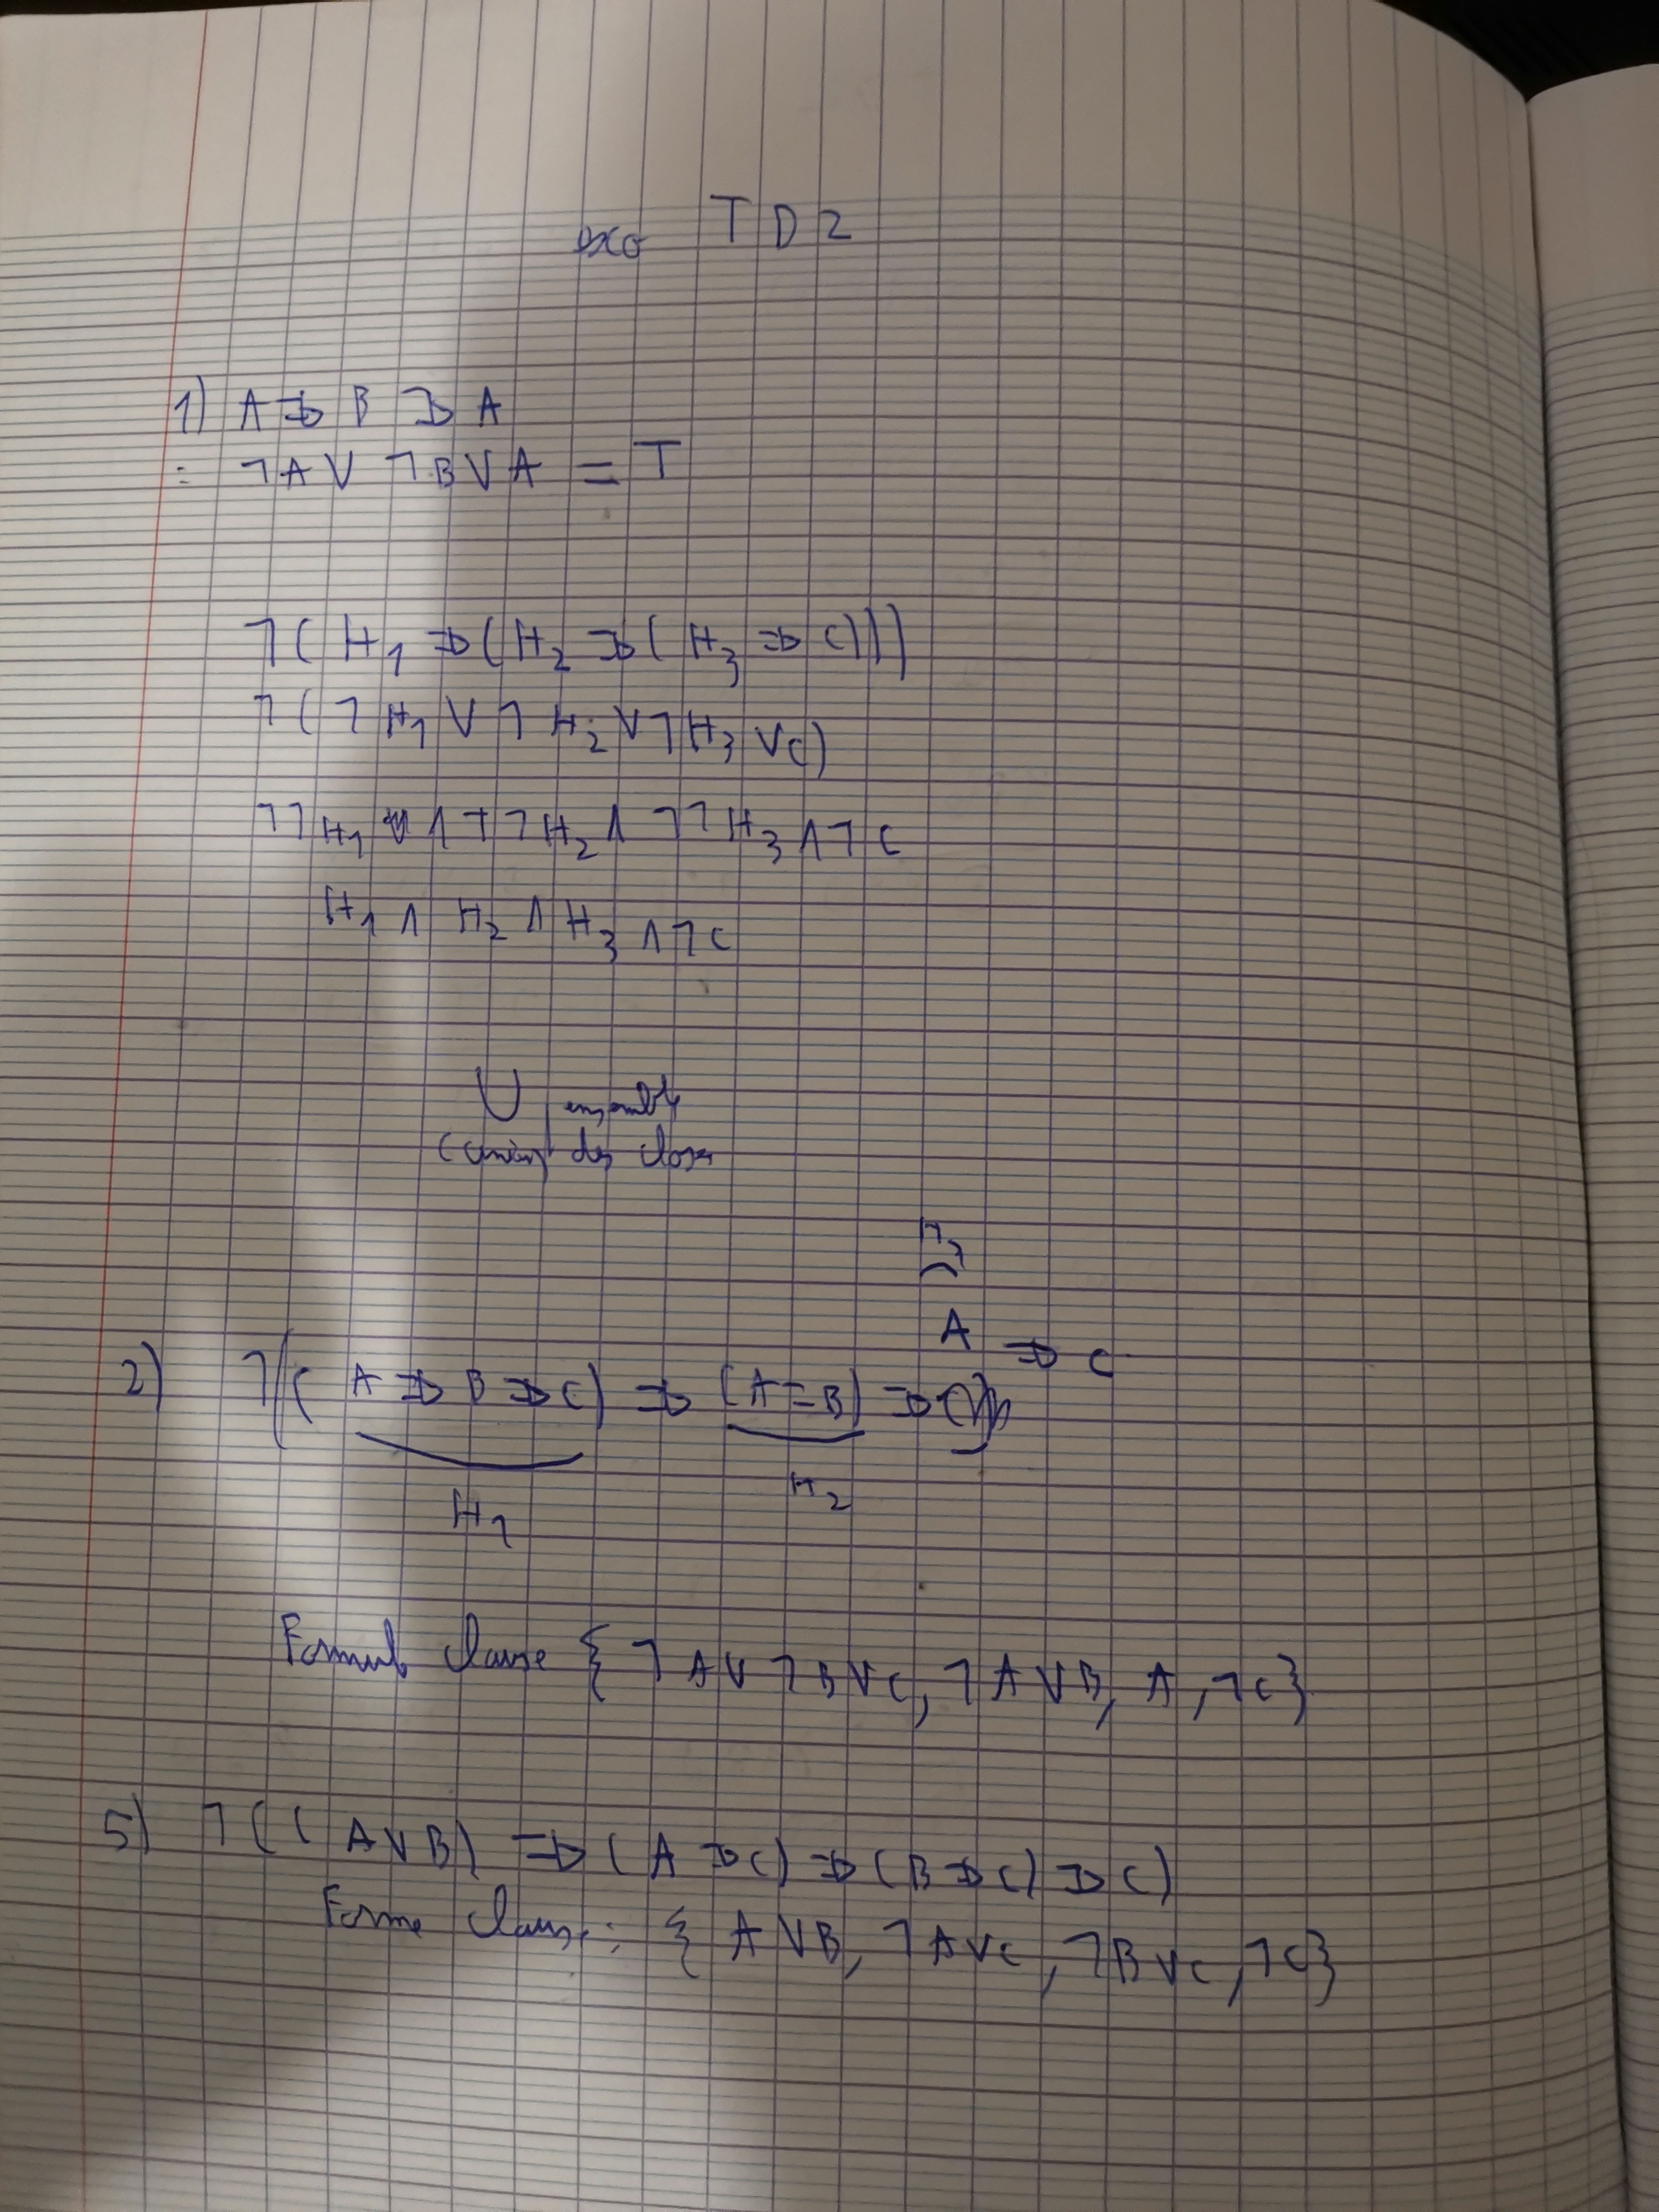 exo TD2
1) A ⇒ B ⇒ A
= ¬A ∨ ¬B ∨ A = T
¬( H₁ ⇒ ( H₂ ⇒ ( H₃ ⇒ C)))
¬( ¬H₁ ∨ ¬H₂ ∨ ¬H₃ ∨ C)
¬¬H₁ ∧ ¬¬H₂ ∧ ¬¬H₃ ∧ ¬C
H₁ ∧ H₂ ∧ H₃ ∧ ¬C
U ensemble
des
H₃
A ⇒ C
2) ¬(( A ⇒ B ⇒ C) ⇒ (A ⇒ B) ⇒
H₁ H₂
Formule clause { ¬A ∨ ¬B ∨ C, ¬A ∨ B, A, ¬C}
5) ¬(( A ∨ B) ⇒ (A ⇒ C) ⇒ (B ⇒ C) ⇒ C)
Forme Clause : { A ∨ B, ¬A ∨ C, ¬B ∨ C, ¬C}